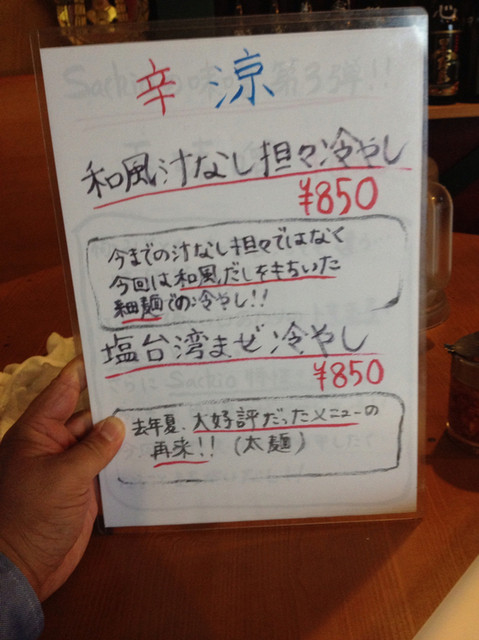 辛涼
和風汁なし担々冷やし
¥850
今までの汁なし担々ではなく
今回は和風だしをもちいた
細麺での冷やし!!
塩台湾まぜ冷やし
¥850
去年夏、大好評だったメニューの
再来!!（太麺）